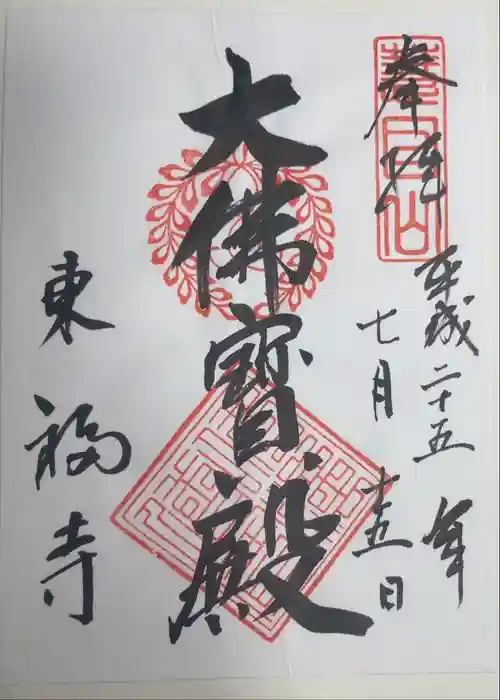 奉拝
平成二十五年
七月十五日
大佛寶殿
東福寺